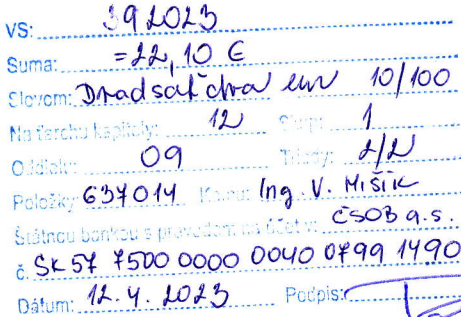 VS: 392023
Suma: =22,10 €
Slovom: Dvadsaťdva eur 10/100
Na ťarchu kapitoly: 12 Skup: 1
Oddielu: 09 Triedy: 2/2
Položky: 637014 Komu: Ing. V. Mišík
Štátnou bankou s prevodom na účet v: ČSOB a.s.
č. SK 57 7500 0000 0040 0799 1490
Dátum: 12.4.2023 Podpis: